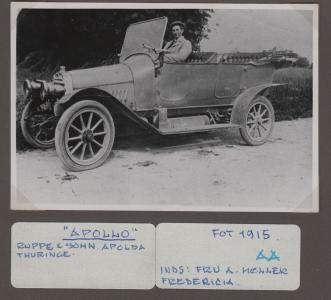 "APOLLO"
RUPPE & SOHN. APOLDA
THURINGE.
FOT 1915
INDS: FRU A. MØLLER
FREDERICIA.